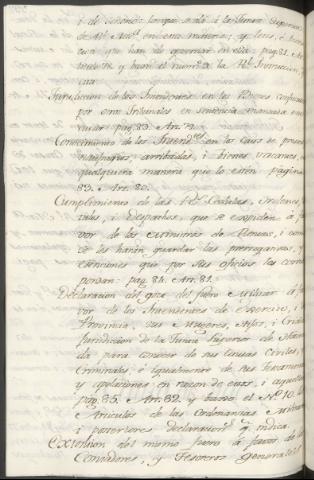 i de Señorio
de Rl. en esta materia; y leies, i
cion que han de governar en ella: pag. 81. Art.
y baxo el num.º de la Rl. Instruccion
Jurisdiccion de los Intendentes en los Bienes confiscados
por otros Tribunales en sentencia pasada en
pag. 83. Art. 79.
Conocimiento de los Intend.tes en las Causas de presas
naufragios, arribadas, i bienes vacantes, de
qualquiera manera que lo estén pagina
83. Art. 80.
Cumplimiento de las Rs. Cedulas, Ordenes,
tulos, i Despachos que se expiden á fa-
vor de los Ministros de Rentas, i como
se les harán guardar las prerrogativas, y
esenciones que por sus oficios les corres-
pondan: pag. 84. Art. 81.
Declaracion del goze del fuero Militar á fa-
vor de los Intendentes de Exercito, i
Provincia, sus Mugeres, Hijos, i Criados
Jurisdiccion de la Junta Superior de Hacien-
da para conocer de sus Causas Civiles, y
Criminales, é igualmente de sus Testamentos
y apelaciones en razon de ellas, i aquellas
pag. 85. Art. 82. y baxo el N.º 10. los
Articulos de las Ordenanzas Militares
i posteriores declaraciones q. indica.
Extension del mismo fuero á favor de los
Contadores, y Tesoreros generales